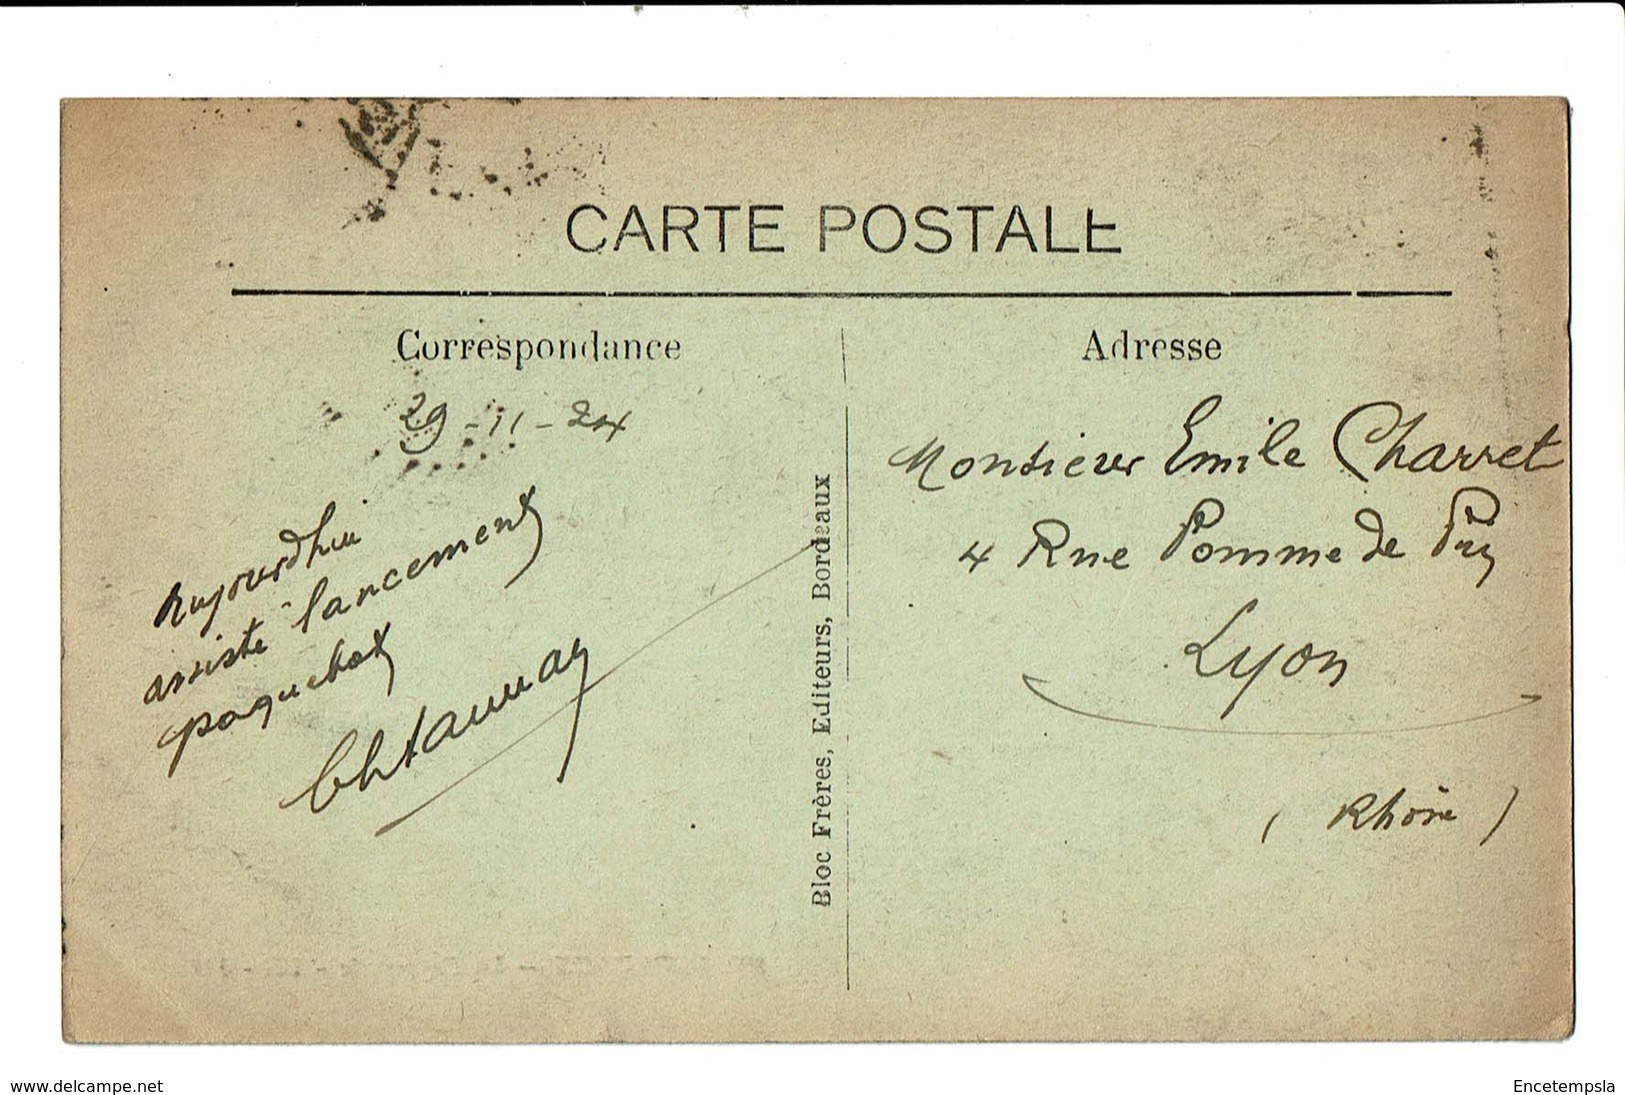 CARTE POSTALE
Correspondance
29-11-24
Aujourdhui
assiste lancement
paquebot
Bloc Frères, Editeurs, Bordeaux
Adresse
Monsieur Emile Charret
4 Rue Pomme de Pin
Lyon
( Rhône )
www.delcampe.net
Encetempsla